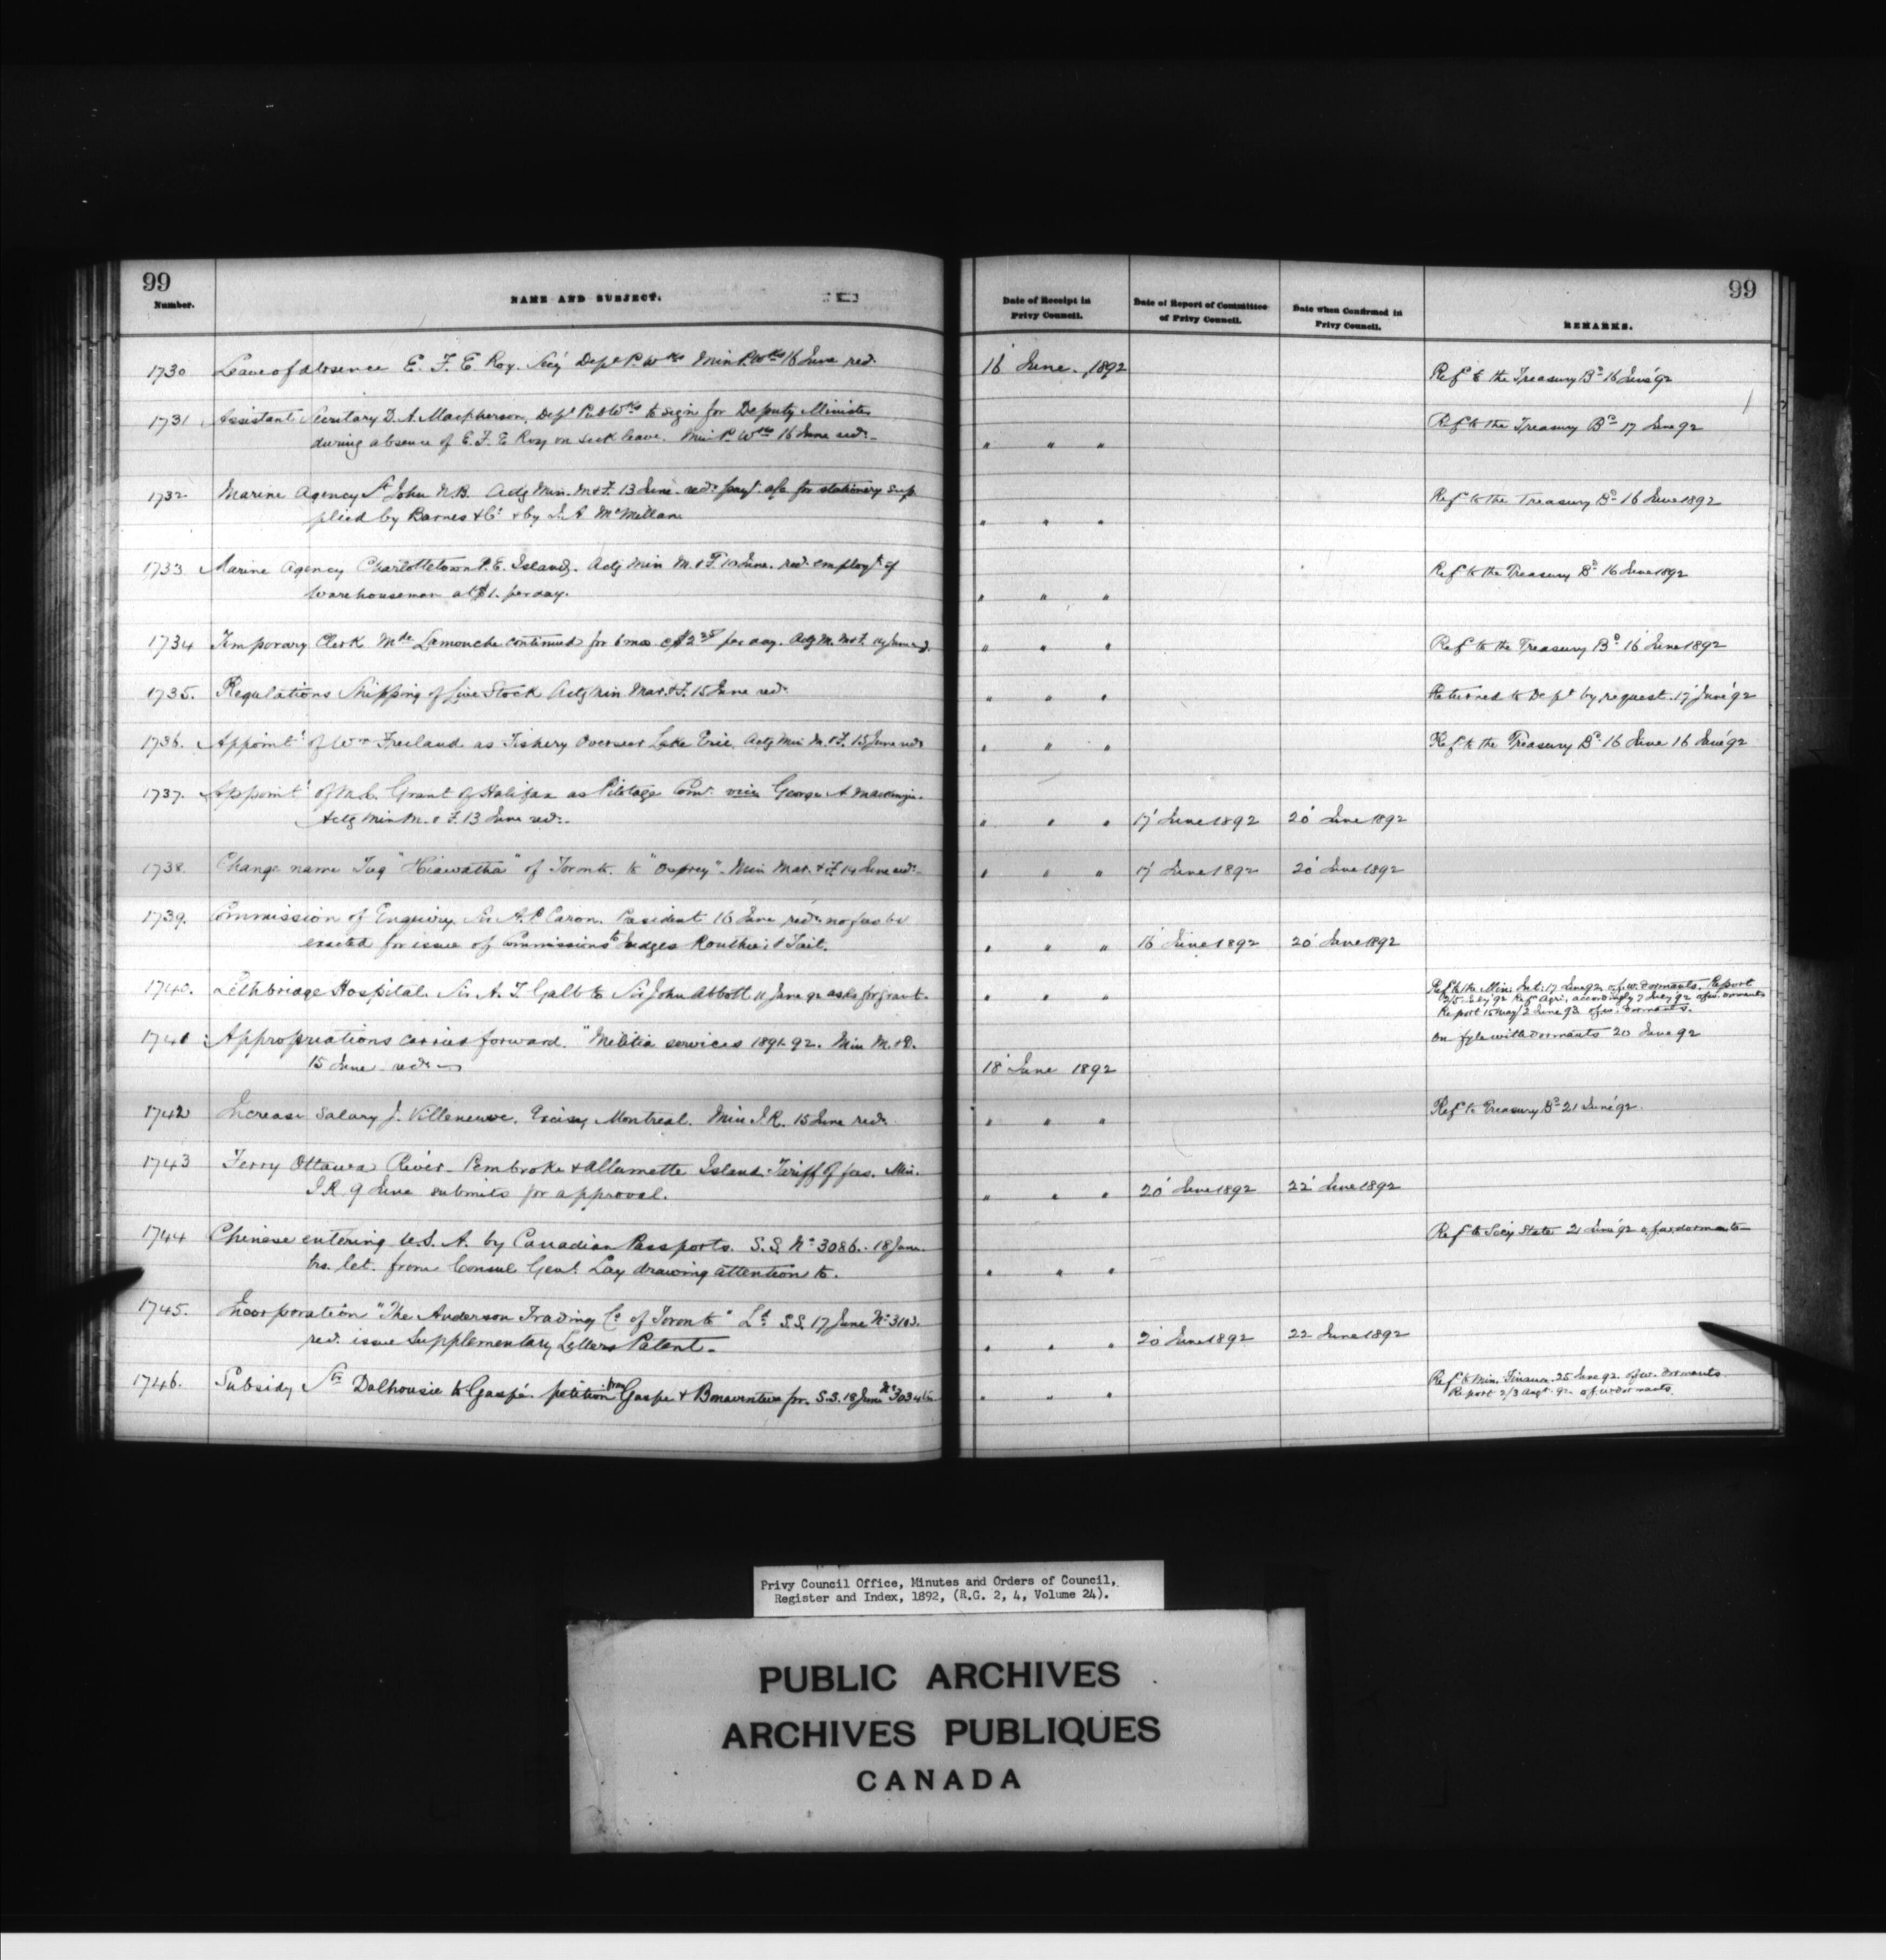 99
99
Number.
NAME AND SUBJECT.
Date of Receipt in
Privy Council.
Date of Report of Committee
of Privy Council.
Date when Confirmed in
Privy Council.
REMARKS.
1730 Leave of absence E. F. E. Roy. Secy Dept P. Wks Min P. Wks 16 June recs. 16 June. 1892 Refd to the Treasury Bd 16 June '92
1731 Assistant Secretary D. A. Macpherson, Dept Pub Wks to sign for Deputy Minister Refd to the Treasury Bd 17 June 92
during absence of E. F. E Roy on sick leave. Min P. Wks 16 June recs. " " "
1732 Marine Agency St John N.B. Actg Min. M & F. 13 June recs payt a/c for stationery sup Refd to the Treasury Bd 16 June 1892
plied by Barnes & Co & by J. A McMillan " " "
1733 Marine Agency Charlottetown P. E. Island. Actg Min M. & F 10 June. recs employt of Refd to the Treasury Bd 16 June 1892
Warehouseman at $1. per day. " " "
1734 Temporary Clerk Mde Lamouche continued for 6 mos @ $2 per day. Actg M. M & F. " " " Refd to the Treasury Bd 16 June 1892
1735. Regulations Shipping of Live Stock Actg Min Mar. & F. 15 June recs " " " Returned to Dept by request. 17 June '92
1736. Appointt of Wm Freeland as Fishery Overseer Lake Erie. Actg Min M. & F. 15 June recs " " " Refd to the Treasury Bd 16 June 16 June '92
1737. Appointt of Grant of Halifax as Pilotage Comr. vice George A Mackenzie.
Actg Min M. & F. 13 June recs. " " " 17 June 1892 20 June 1892
1738. Change name Tug "Hiawatha" of Toronto to "Osprey". Min Mar. & F 14 June recs. " " " 17 June 1892 20 June 1892
1739. Commission of Enquiry Sir A. P Caron. President 16 June recs no fees be
exacted for issue of Commissions to Judges Routhier & Tait. " " " 16 June 1892 20 June 1892
1740. Lethbridge Hospital. Sir A. T. Galt to Sir John Abbott 11 June 92 asks for grant. " " " Refd to the Min. Int. 17 June 92 of. w. dormants. Report
2/5 July '92 Refd Agri, accordingly 7 July '92 of. w. dormants
Report 15 May/2 June 93 of. w. Dormants.
1741 Appropriations carried forward. "Militia services 1891-92. Min M. & D. on fyle with dormants 20 June 92
15 June recs 18 June 1892
1742 Increase Salary J. Villeneuve. Excise Montreal. Min I.R. 15 June recs. " " " Refd to Treasury Bd 21 June '92
1743 Ferry Ottawa River. Pembroke & Allumette Island. Tariff of fees. Min.
I.R. 9 June submits for approval. " " " 20 June 1892 22 June 1892
1744 Chinese entering U. S. A. by Canadian Passports. S. S. No 3086. 18 June. Refd to Secy State 21 June '92 of. w. dormants
trs. let. from Consul Genl. Lay drawing attention to. " " "
1745. Incorporation "The Anderson Trading Co of Toronto" Ld S.S. 17 June No 3103.
recs. issue Supplementary Letters Patent. " " " 20 June 1892 22 June 1892
1746. Subsidy Str Dalhousie to Gaspé. petition from Gaspe & Bonaventure for. S.S. 18 June " " " Refd to Min. Finance 25 June 92 of. w. dormants
Report 2/3 Augt. 92 of. w. dormants.
Privy Council Office, Minutes and Orders of Council,
Register and Index, 1892, (R.G. 2, 4, Volume 24).
PUBLIC ARCHIVES
ARCHIVES PUBLIQUES
CANADA